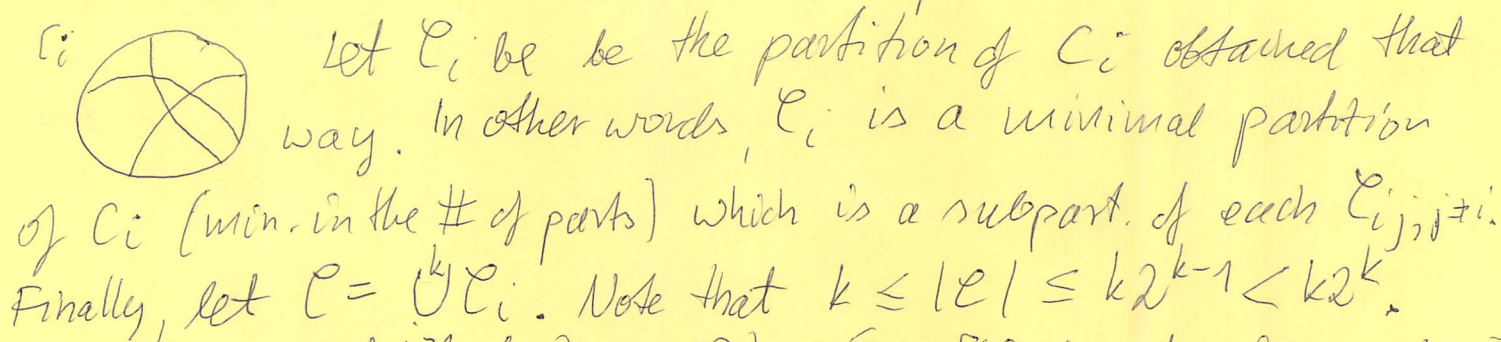 Ci Let 𝒞i be be the partition of Ci obtained that
way. In other words, 𝒞i is a minimal partition
of Ci (min. in the # of parts) which is a subpart. of each 𝒞ij, j≠i.
Finally, let 𝒞 = ⋃^k 𝒞i. Note that k ≤ |𝒞| ≤ k2^{k-1} < k2^k.